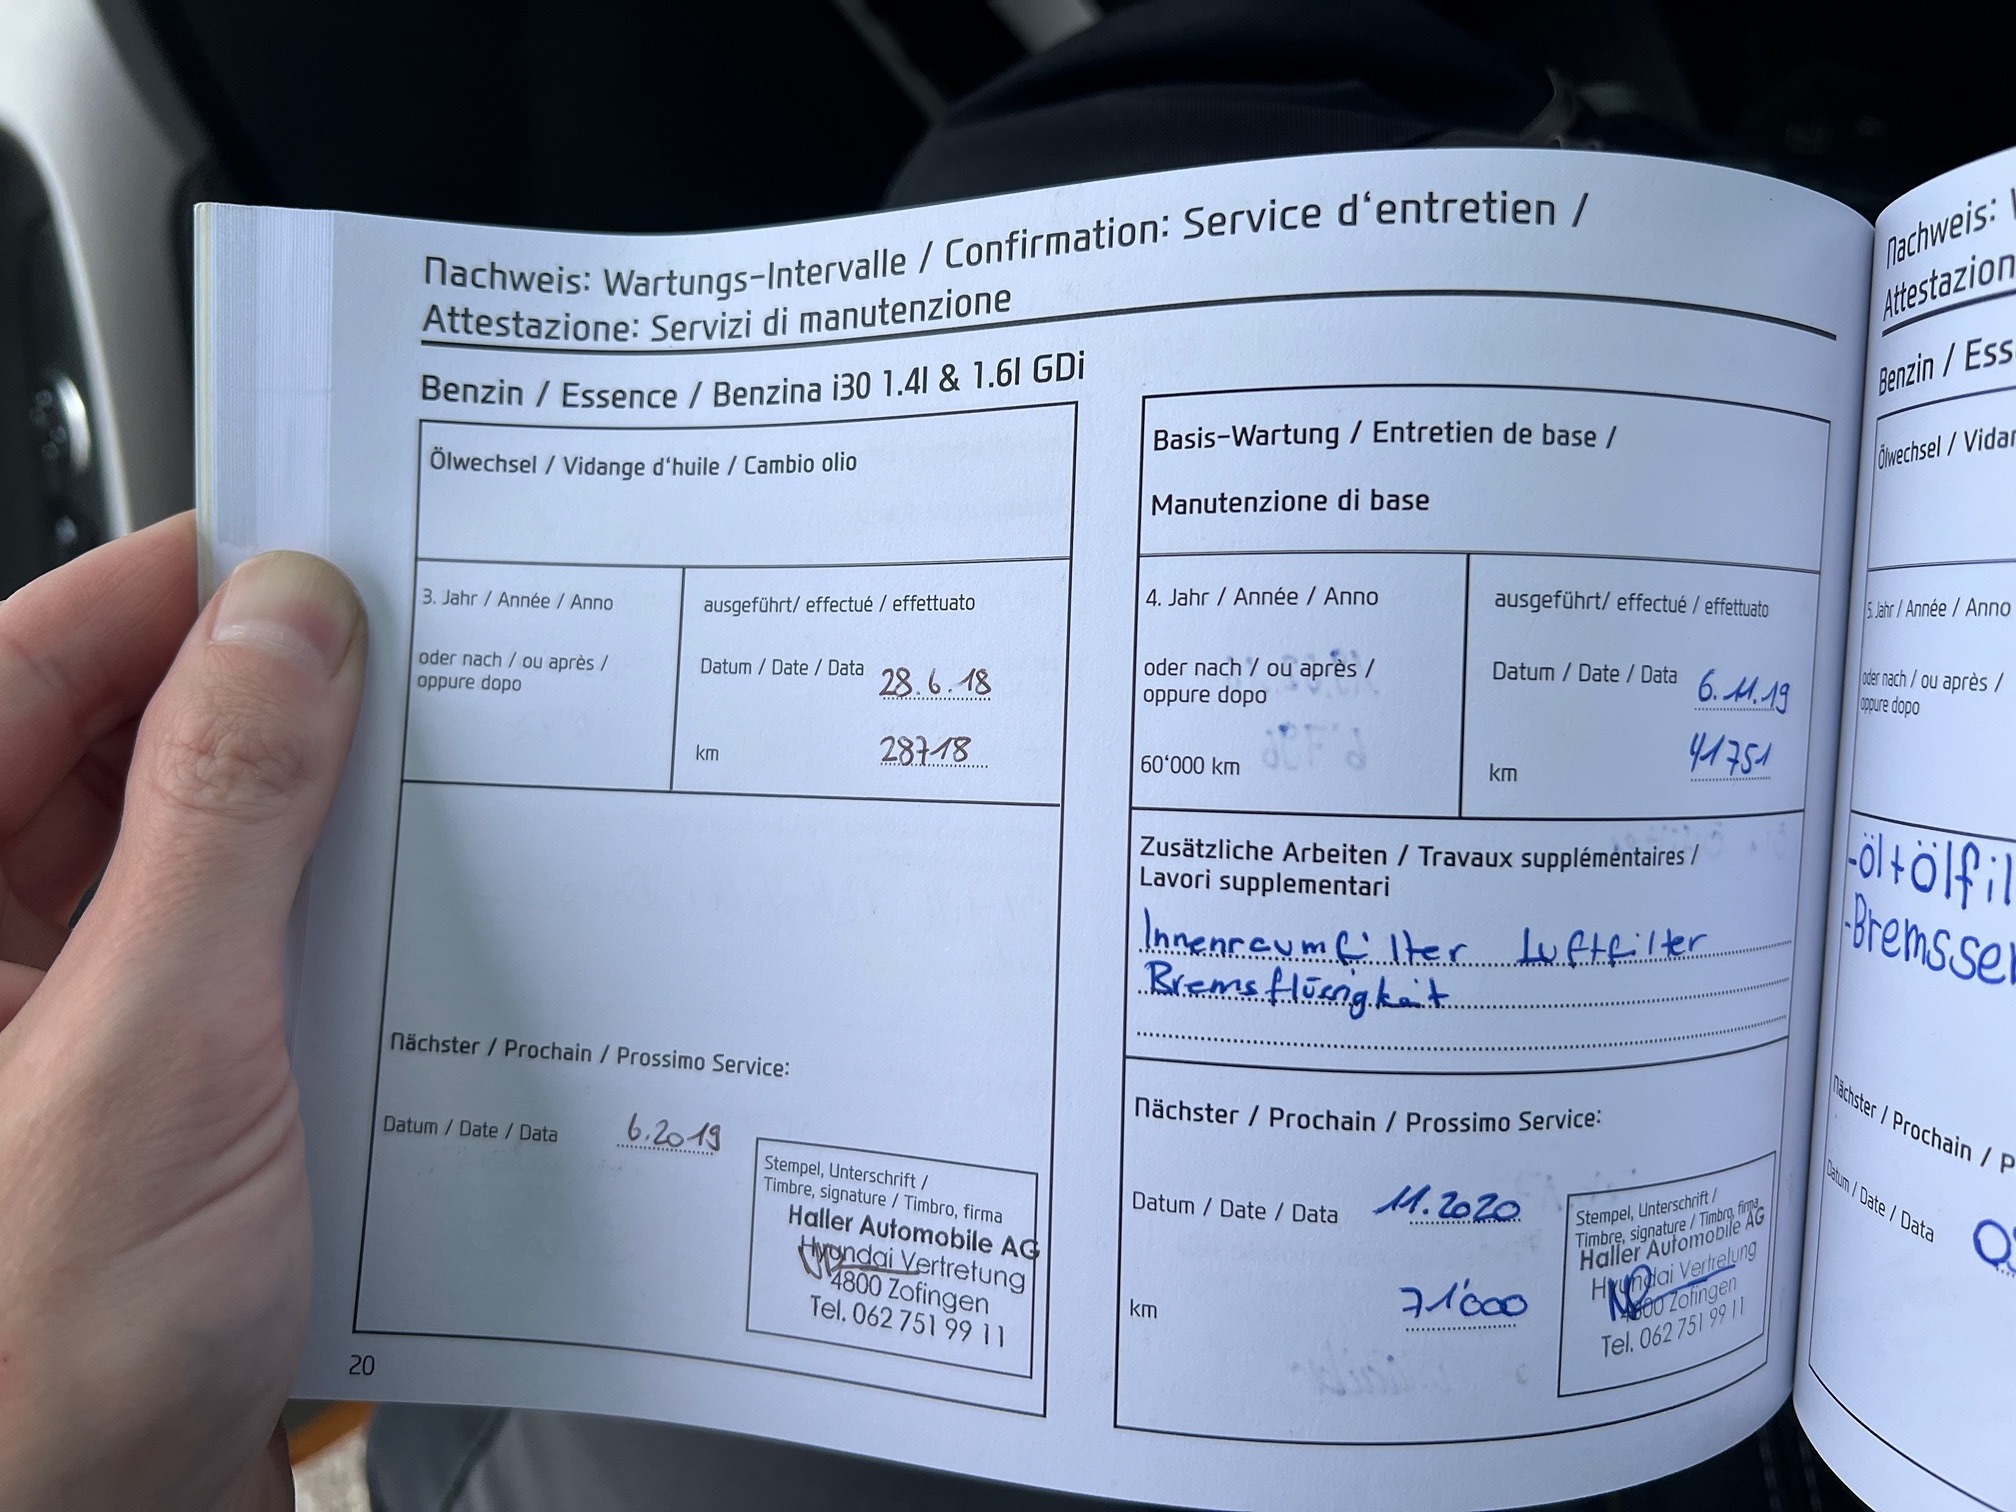 Nachweis: Wartungs-Intervalle / Confirmation: Service d'entretien /
Attestazione: Servizi di manutenzione
Benzin / Essence / Benzina i30 1.4l & 1.6l GDi
Ölwechsel / Vidange d'huile / Cambio olio
3. Jahr / Année / Anno
oder nach / ou après /
oppure dopo
ausgeführt/ effectué / effettuato
Datum / Date / Data 28.6.18
km 28718
Nächster / Prochain / Prossimo Service:
Datum / Date / Data 6.2019
Stempel, Unterschrift /
Timbre, signature / Timbro, firma
Haller Automobile AG
Hyundai Vertretung
4800 Zofingen
Tel. 062 751 99 11
20
Basis-Wartung / Entretien de base /
Manutenzione di base
4. Jahr / Année / Anno
oder nach / ou après /
oppure dopo
60'000 km
ausgeführt/ effectué / effettuato
Datum / Date / Data 6.11.19
km 41751
Zusätzliche Arbeiten / Travaux supplémentaires /
Lavori supplementari
Innenraumfilter Luftfilter
Bremsflüssigkeit
Nächster / Prochain / Prossimo Service:
Datum / Date / Data 11.2020
km 71'000
Stempel, Unterschrift /
Timbre, signature / Timbro, firma
Haller Automobile AG
Hyundai Vertretung
4800 Zofingen
Tel. 062 751 99 11
Nachweis:
Attestazion
Benzin / Ess
Ölwechsel / Vidan
5. Jahr / Année / Anno
oder nach / ou après /
oppure dopo
-öl+ölfil
-Bremsse
Nächster / Prochain / P
Datum / Date / Data